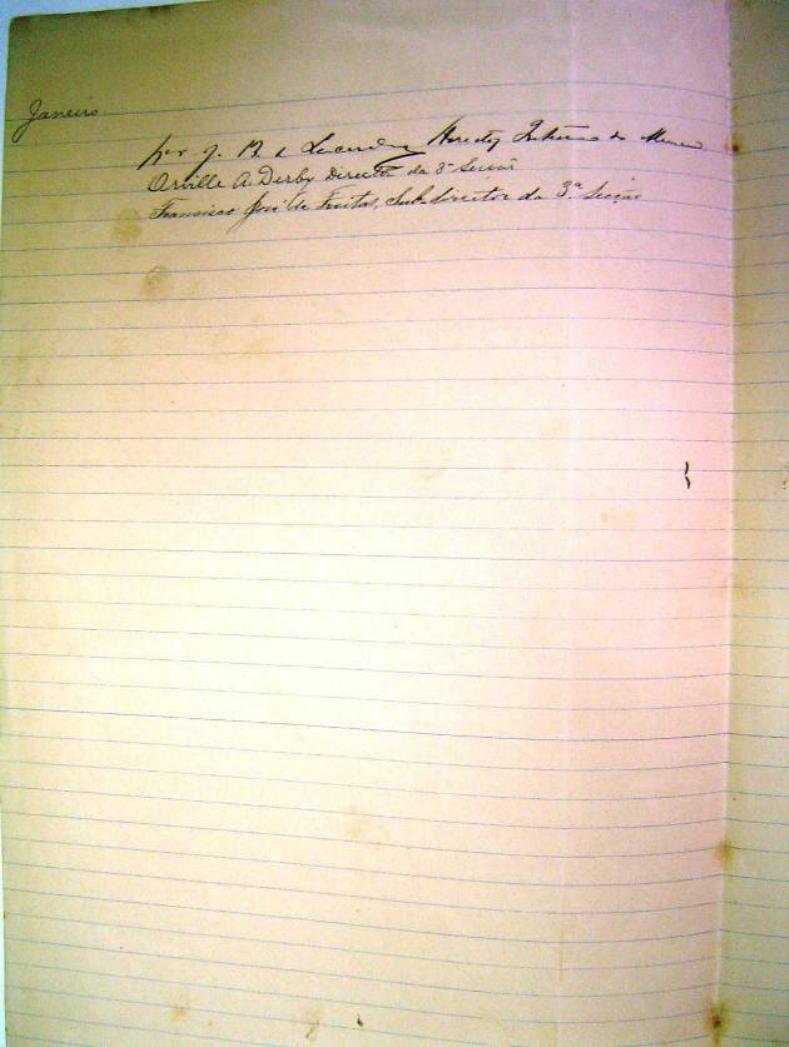 Janeiro
J. B. de Lacerda Director Interino do Museu
Orville A. Derby Director da 3ª Secção
Francisco José de Freitas, Sub-director da 3ª Secção